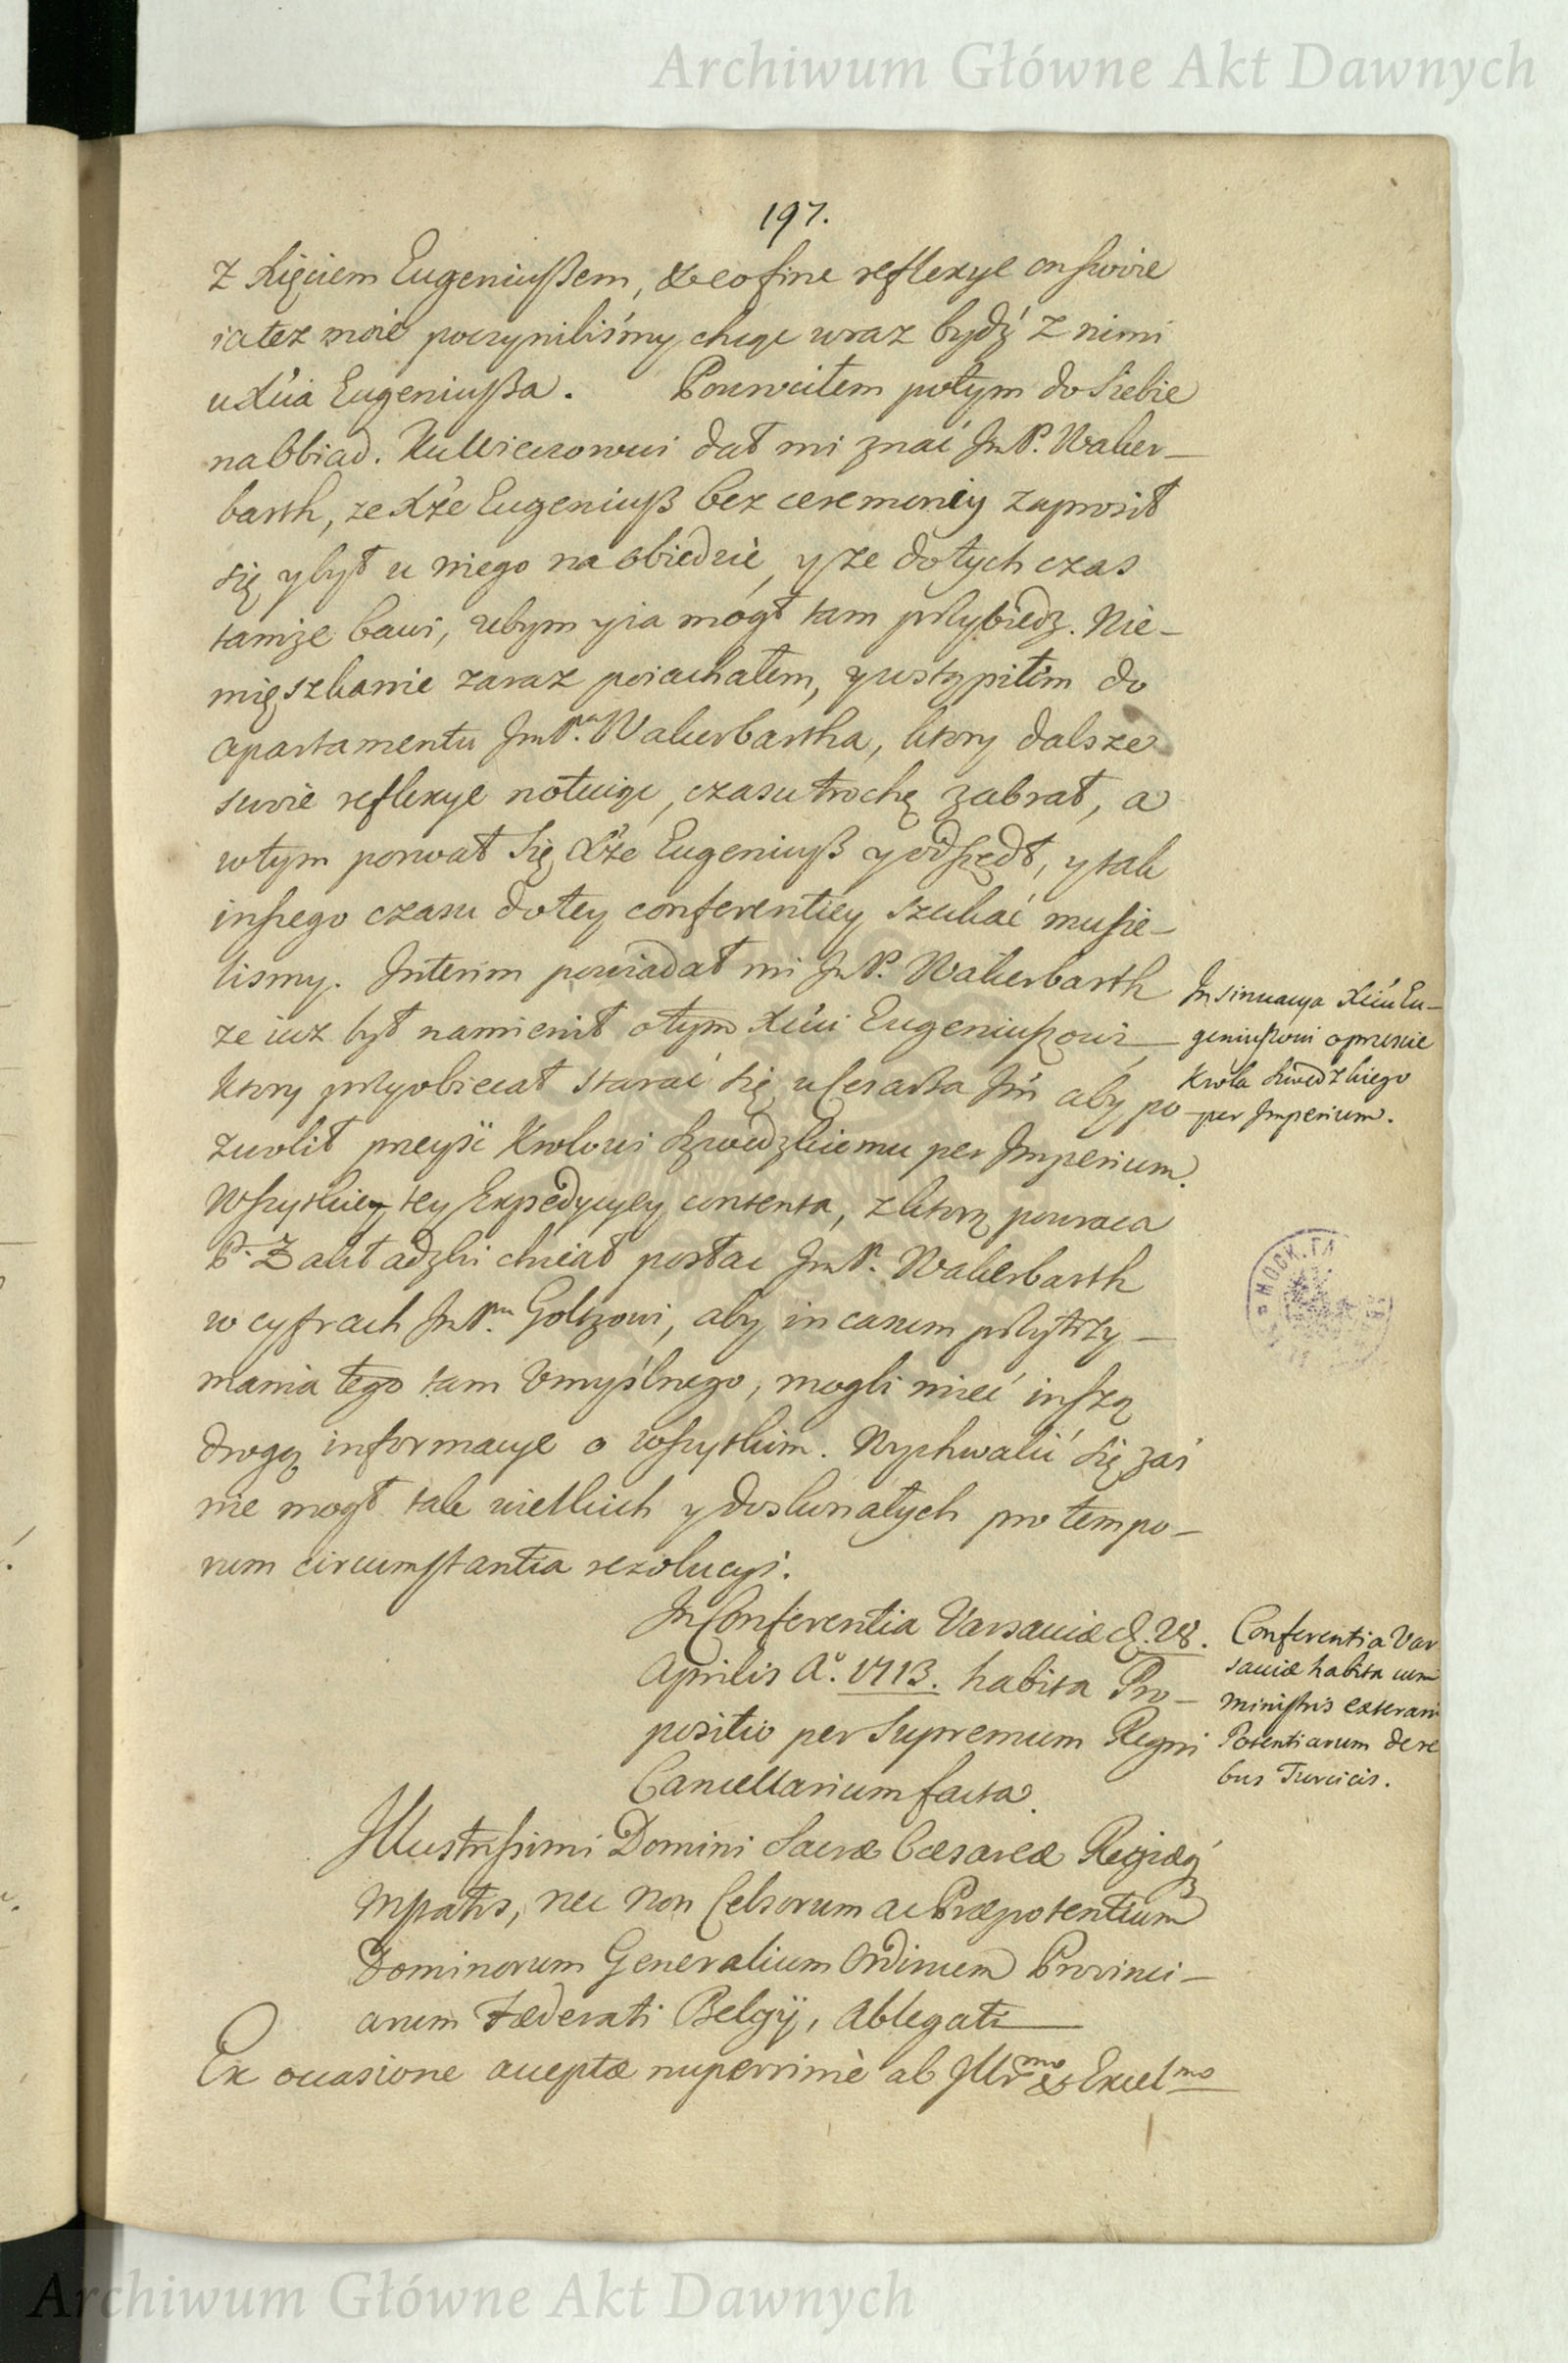 Archiwum Główne Akt Dawnych
197.
z Xięciem Eugeniuszem, & eo fine reflexye on swoie
ia tez moie poczynilismy chcąc wraz bydź z nimi
u Xcia Eugeniusza. Powrociłem potym do siebie
na Obiad. Ku Wieczorowi dał mi znać JmP. Wakier-
barth, ze Xże Eugeniusz bez ceremoniy zaprosił
się y był u niego na obiedzie, y ze do tych czas
tamże bawi, zebym y ia mógł tam przybiedz. Nie-
mięszkanie zaraz poiachałem, y wstąpiłem do
apartamentu JmPna Wakierbartha, ktory dalsze
swoie reflexye notuiąc, czasu trochę zabrał, a
wtym porwał się Xże Eugeniusz y odszedł, y tak
inszego czasu do tey conferentiey szukać musie-
lismy. Interim powiadał mi JmP. Wakierbarth
ze iuz był namienił o tym Xciu Eugeniuszowi,
ktory przyobiecał starać się u Cesarza Jm aby po-
zwolił przeyść Krolowi Szwedzkiemu per Imperium.
Wszystkiey tey Expedycyey contenta, z ktorą powraca
P. Zakładzki chciał posłac JmP. Wakierbarth
w cyfrach JmPnu Goltzowi, aby in casum przytrzy-
mania tego tam Umyślnego, mogli mieć inszą
drogą informacye o wszystkim. Wychwalić się zaś
nie mogł tak wielkich y doskonałych pro tempo-
rum circumstantia rezolucyi.
Insinuacya Xciu Eu-
geniuszowi o przescie
Krola Szwedzkiego
per Imperium.
In Conferentia Varsaviæ d. 28.
Aprilis Ao. 1713. habita Pro-
positio per Supremum Regni
Cancellarium facta.
Conferentia Var
saviæ habita cum
ministris exterarū
Potentiarum de re
bus Turcicis.
Illustrissimi Domini Sacræ Cæsareæ Regiæq
Mttatis, nec non Celsorum ac Præpotentium
Dominorum Generalium Ordinum Provinci-
arum Fœderati Belgij, Ablegati
Ex occasione acceptæ nuperrimè ab Illrmo & Excelmo
МОСК. ГЛ
Archiwum Główne Akt Dawnych